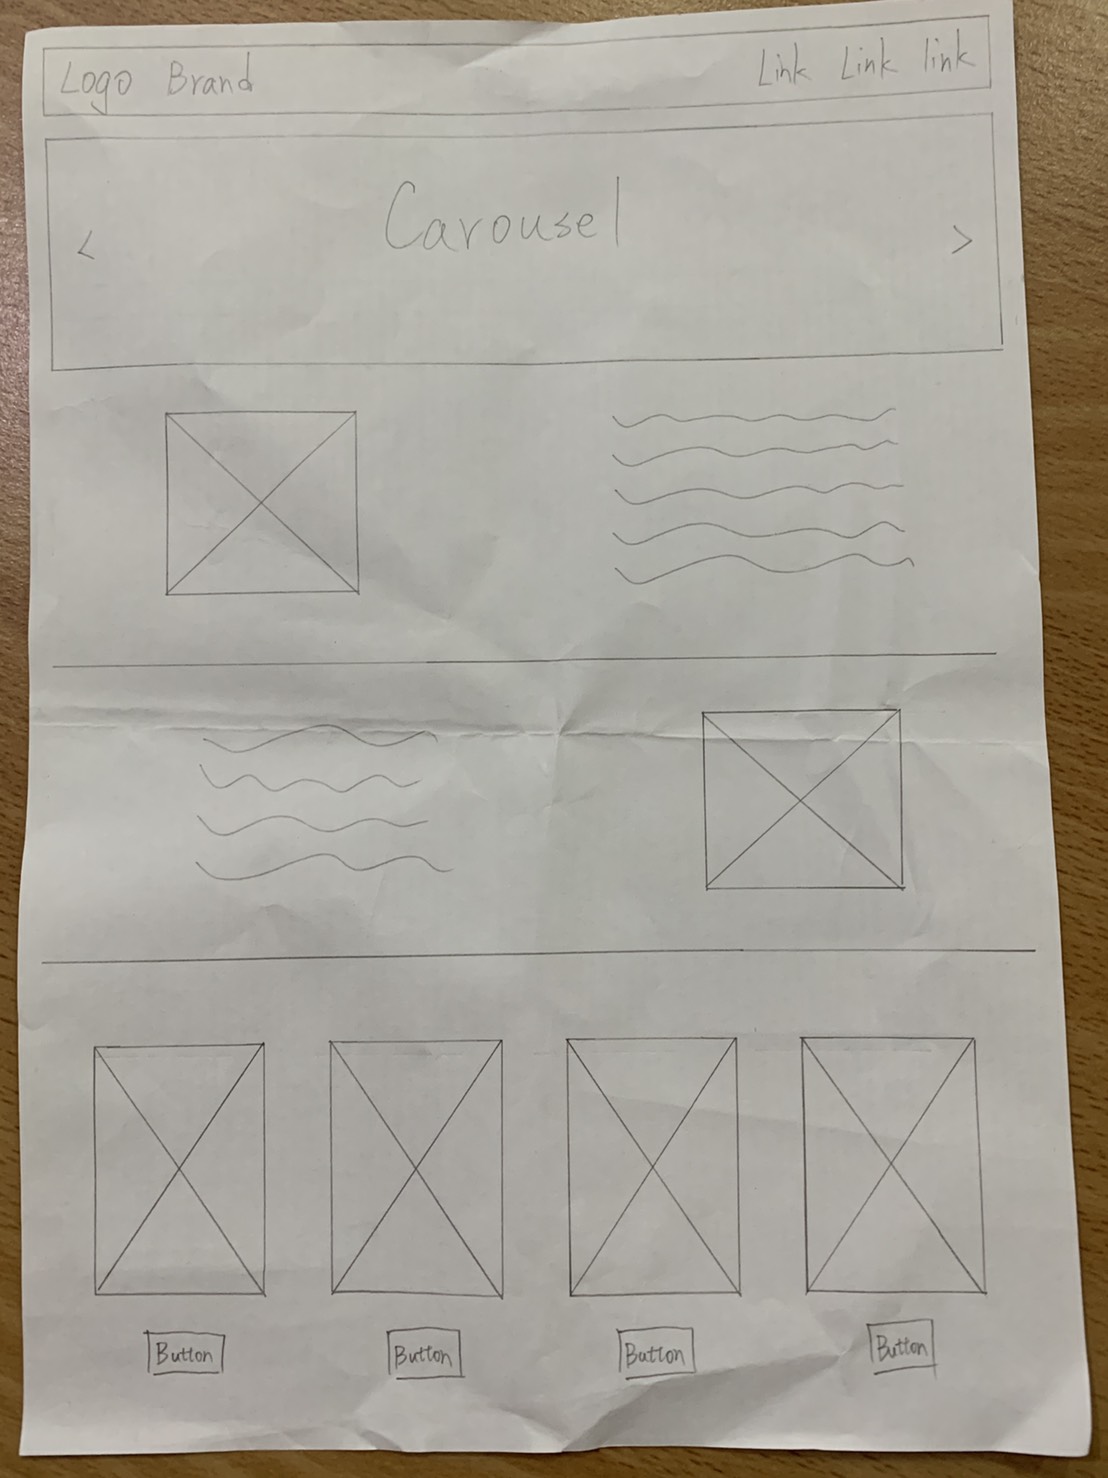 Logo Brand Link Link link
Carousel
< >
Button Button Button Button